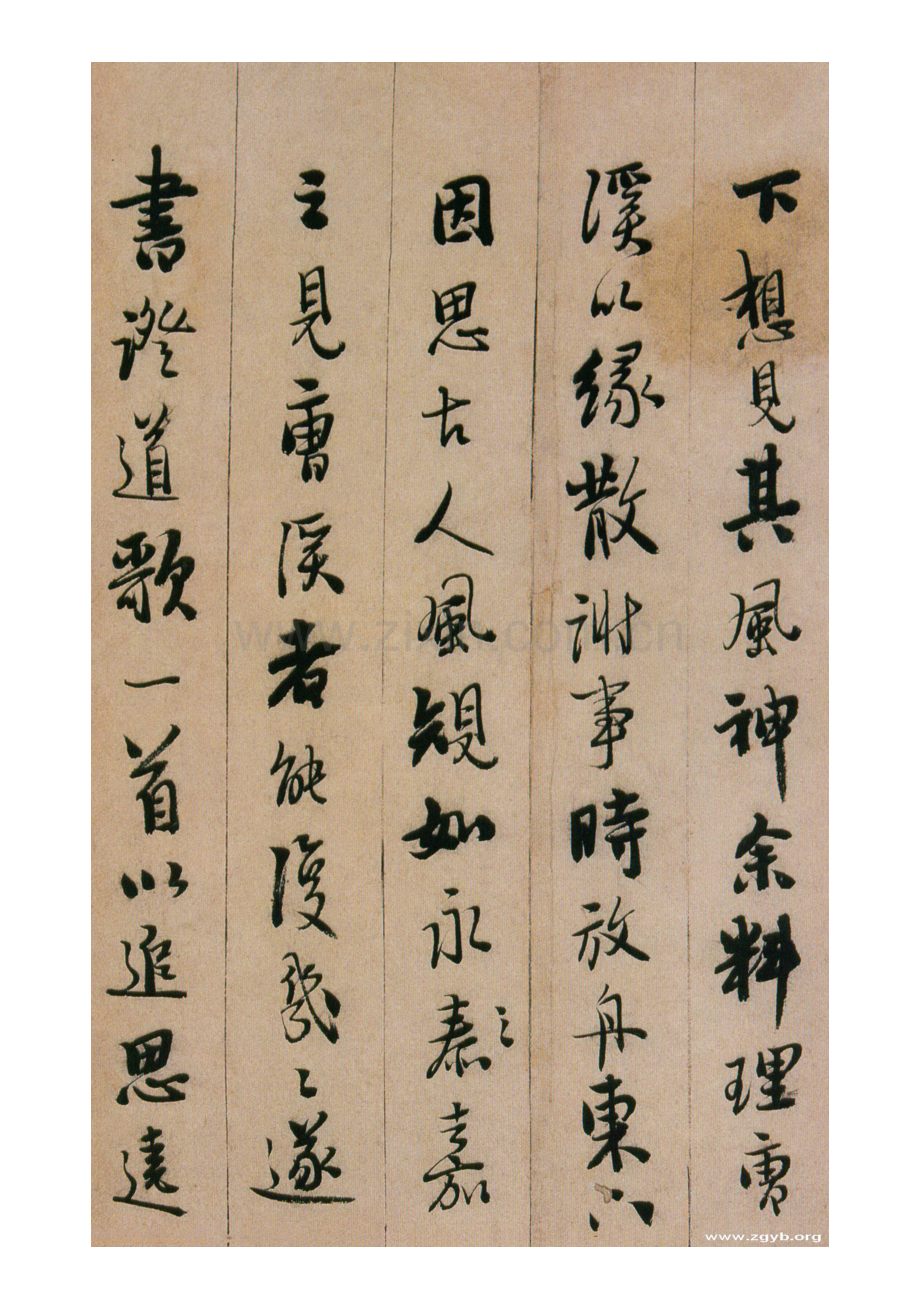 下想見其風神余料理曹
溪以緣散謝事時放舟東下
因思古人風規如永泰之嘉
之見曹溪者能復幾〻遂
書證道歌一首以追思達
www.zgyb.org